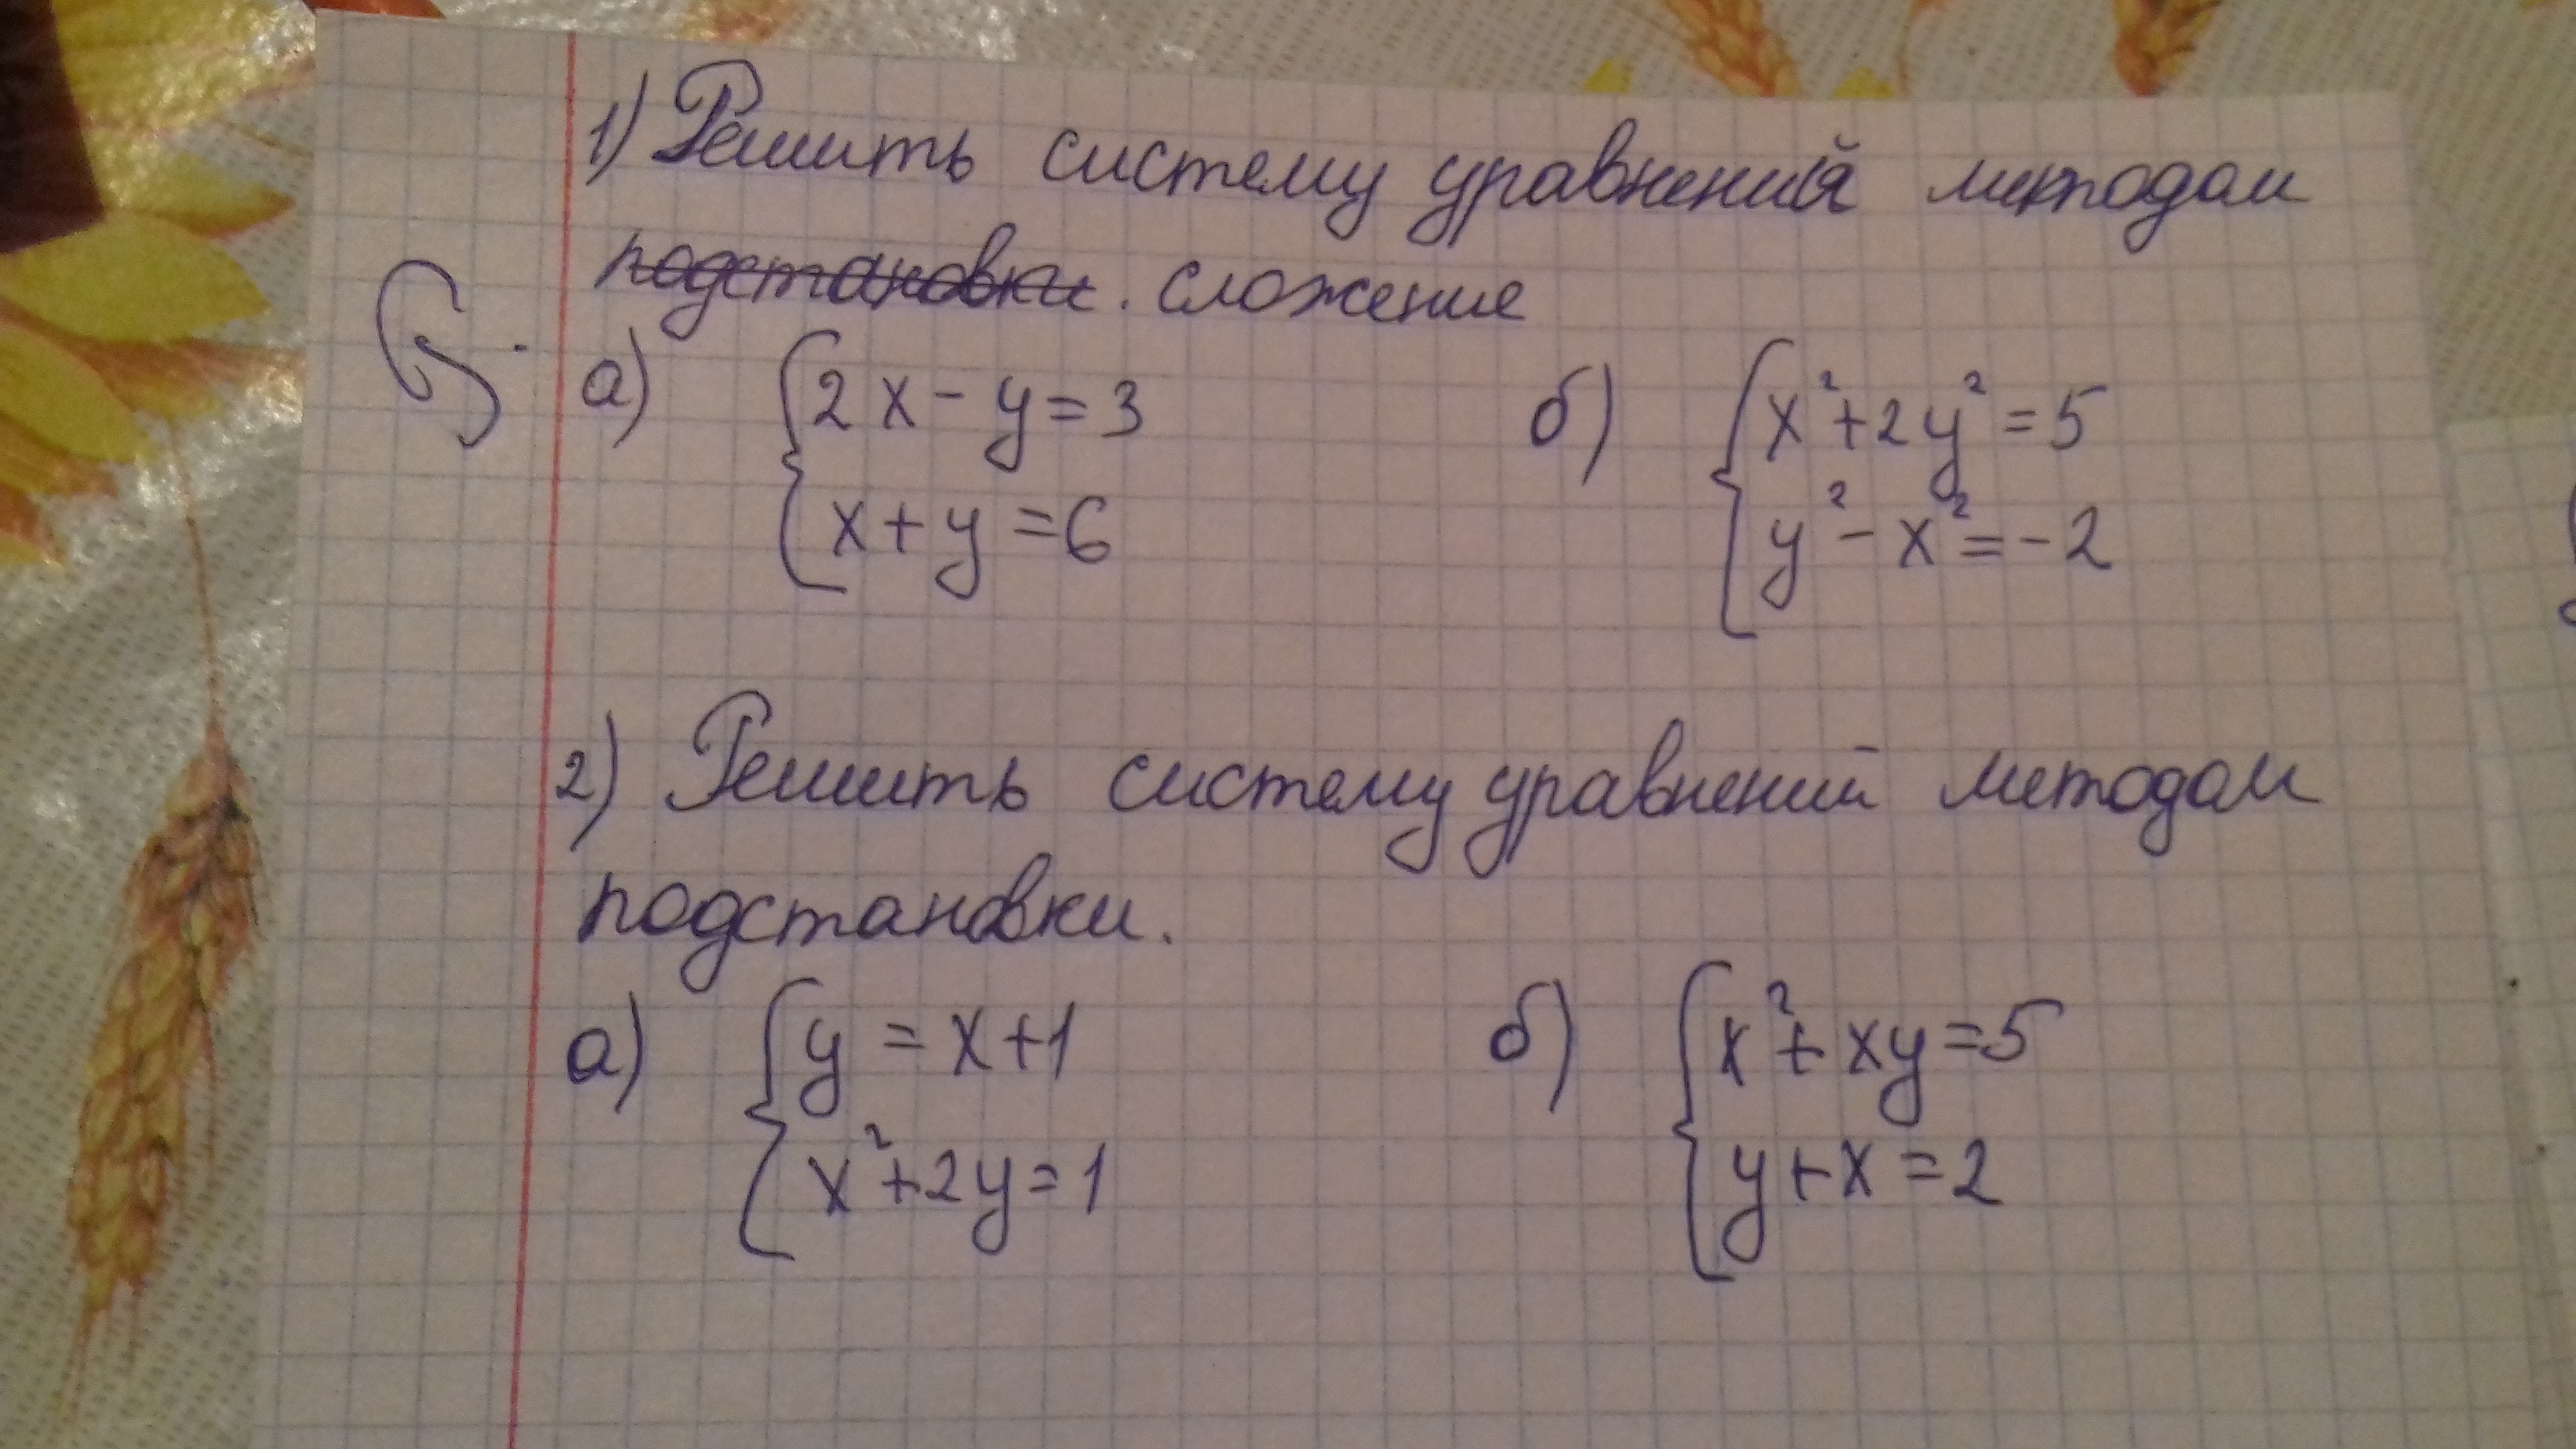 1) Решить систему уравнений методом
подстановки. сложение
а) { 2x - y = 3   б) { x²+2y² = 5
x + y = 6   y² - x² = -2
2) Решить систему уравнений методом
подстановки.
а) { y = x+1   б) { x² + xy = 5
x²+2y = 1   y + x = 2